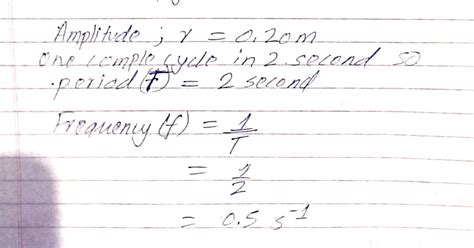 Amplitude ; r = 0.20m
One comple cycle in 2 second so
.period (T) = 2 second
Frequency (f) = 1/T
= 1/2
= 0.5 s⁻¹